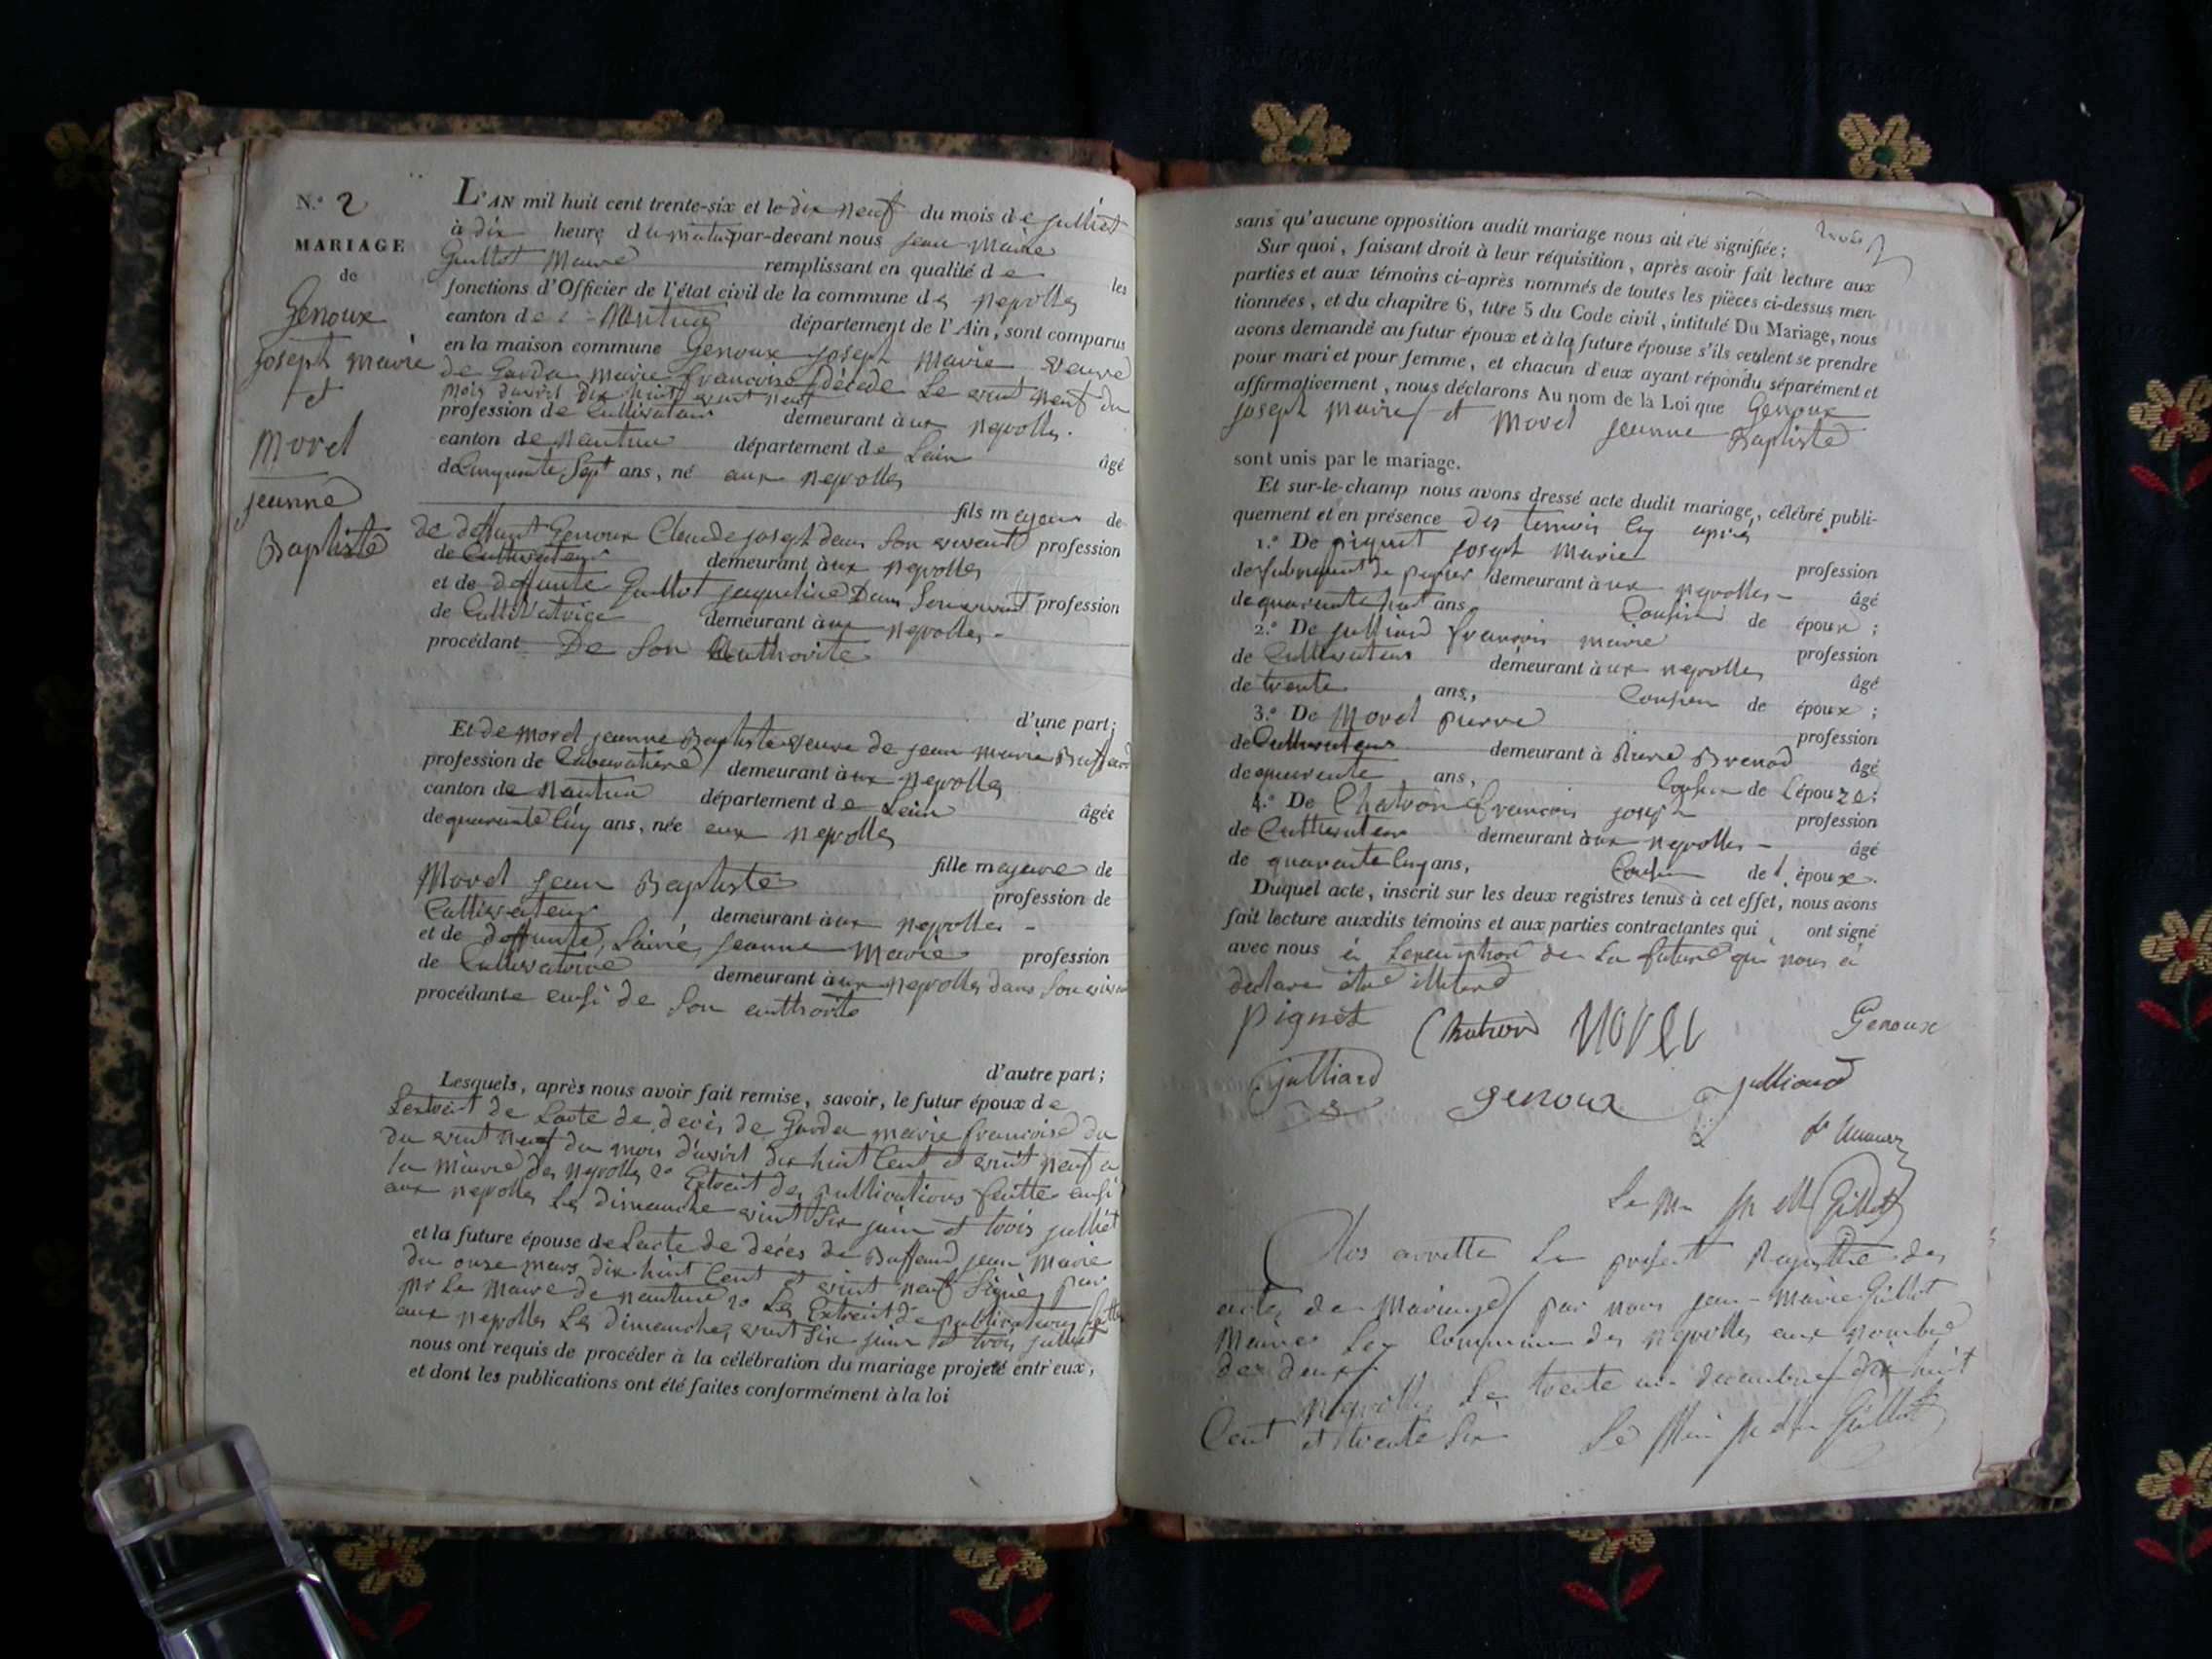 N.o 2
MARIAGE
de
Genoux
joseph marie
et
Morel
jeanne
Baptiste
L'AN mil huit cent trente-six et le dix neuf du mois de julliet
à dix heure du matin par-devant nous jean Marie
Guillot Maire remplissant en qualité de les
fonctions d'Officier de l'état civil de la commune des neyrolles
canton de Nantua département de l'Ain, sont comparus
en la maison commune Genoux joseph Marie veuve
de Garda marie francoise décédé Le vint neuf du
mois d'avril dix huit vint neuf
profession de Cultivateur demeurant à ux neyrolles.
canton de nantua département de Lain âgé
de Cinquante Sept ans, né aux neyrolles
fils majeur de
de deffunt Genoux Claude joseph dans son vivant profession
de Cultivateur demeurant à ux neyrolles
et de deffunte Guillot jaqueline Dans Son vivant profession
de Cultivatrice demeurant à ux neyrolles -
procédant De Son Authorité
d'une part;
Et de morel jeanne Baptiste veuve de jean marie Buffard
profession de Cultivatrice demeurant à ux neyrolles
canton de Nantua département de Lain âgée
de quarante Cinq ans, née aux neyrolles
fille majeure de
Morel jean Baptiste profession de
Cultivateur demeurant à ux neyrolles -
et de deffunte, Lairé jeanne Marie profession
de Cultivatrice demeurant à ux neyrolles dans Son vivant
procédante ausi de Son authorité
d'autre part;
Lesquels, après nous avoir fait remise, savoir, le futur époux de
Lextrait de Lacte de décès de Garda marie francoise du
du vint neuf du mois d'avirl dix huit Cent et vint neuf a
la mairie des neyrolles 2o Extrait des publications faittes ausi
aux neyrolles Les dimanche vint Six juin et trois julliet
et la future épouse de Lacte de décès de Buffard jean Marie
du onse mars dix huit Cent et vint neuf Signé par
Mr Le Maire de nantua 2o Les Extrait de publications faittes
aux neyrolles Les dimanches vint Six juin et trois julliet
nous ont requis de procéder à la célébration du mariage projeté entr'eux,
et dont les publications ont été faites conformément à la loi
sans qu'aucune opposition audit mariage nous ait été signifiée;
Sur quoi, faisant droit à leur réquisition, après avoir fait lecture aux
parties et aux témoins ci-après nommés de toutes les pièces ci-dessus men-
tionnées, et du chapitre 6, titre 5 du Code civil, intitulé Du Mariage, nous
avons demandé au futur époux et à la future épouse s'ils veulent se prendre
pour mari et pour femme, et chacun d'eux ayant répondu séparément et
affirmativement, nous déclarons Au nom de la Loi que Genoux
joseph Marie et Morel jeanne Baptiste
sont unis par le mariage.
Et sur-le-champ nous avons dressé acte dudit mariage, célébré publi-
quement et en présence des temoin Cy après
1.o De piquet joseph Marie profession
de fabriquant de papier demeurant à ux neyrolles - âgé
de quarante huit ans Cousin de époux;
2.o De julliard francois marie profession
de Cultivateur demeurant à ux neyrolles âgé
de trente ans, Cousin de époux;
3.o De Morel pierre profession
de Cultivateur demeurant à Brenod âgé
de quarante ans, Cousin de Lépouze;
4.o De Chatron francois joseph profession
de Cultivateur demeurant à ux neyrolles - âgé
de quarante Cinq ans, Cousin de l époux.
Duquel acte, inscrit sur les deux registres tenus à cet effet, nous avons
fait lecture auxdits témoins et aux parties contractantes qui ont signé
avec nous à Lexcuption de La future qui nous a
declaré être illitaré
piquet Chatron MOREL Genoux
julliard genoux julliard
Le Mre jn Mie Guillot
Clos arretté Le présent Registre des
actes de Mariages par nous jean-Marie Guillot
Maire de la Commune des neyrolles aux nombre
de deux.
neyrolles Le trente un decembre dix huit
Cent et trente Six Le Maire jn Mie Guillot